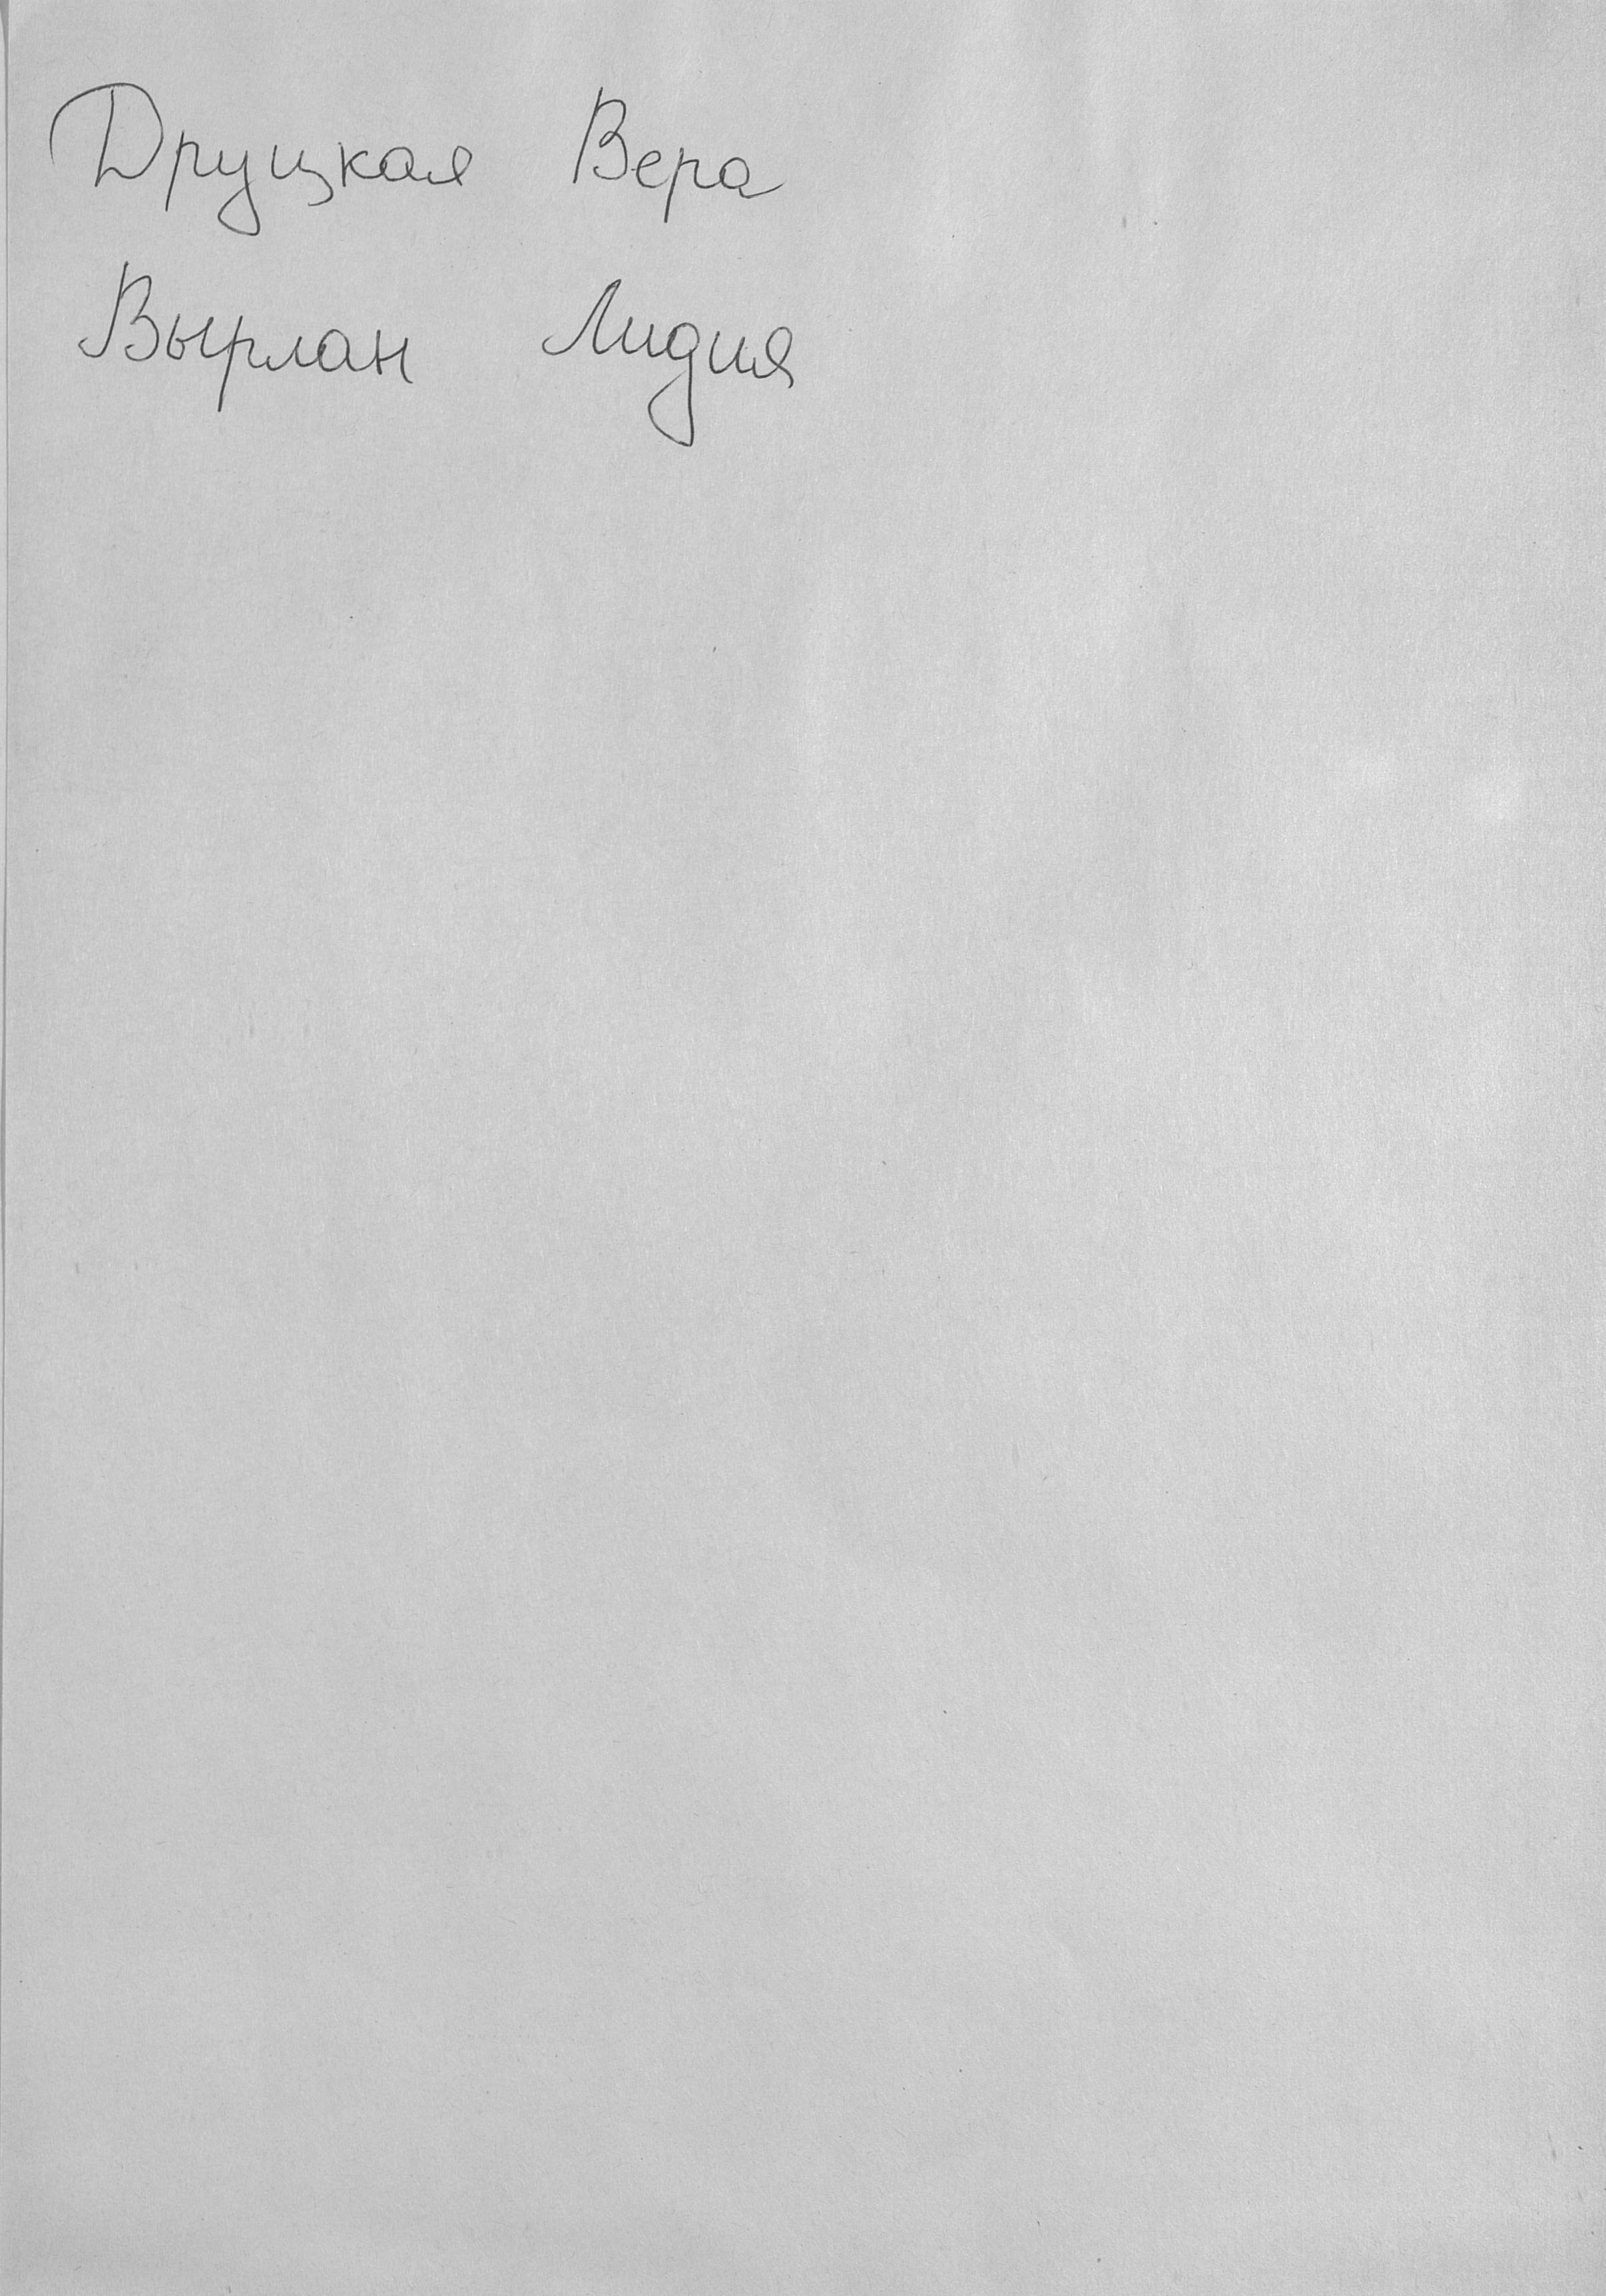 Друцкая Вера
Вырлан Лидия